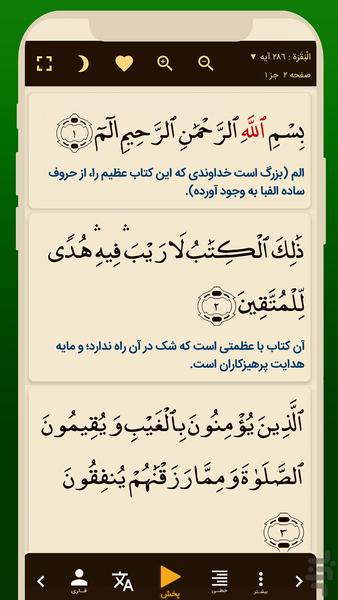 الْبَقَرَة : ۲۸۶ آیه ▼
صفحه ۲ جز ۱
بِسْمِ ٱللَّهِ ٱلرَّحْمَٰنِ ٱلرَّحِيمِ الٓمٓ ﴿١﴾
الم (بزرگ است خداوندی که این کتاب عظیم را، از حروف
ساده الفبا به وجود آورده).
ذَٰلِكَ ٱلْكِتَٰبُ لَا رَيْبَ ۛ فِيهِ ۛ هُدًى
لِّلْمُتَّقِينَ ﴿٢﴾
آن کتاب با عظمتی است که شک در آن راه ندارد؛ و مایه
هدایت پرهیزکاران است.
ٱلَّذِينَ يُؤْمِنُونَ بِٱلْغَيْبِ وَيُقِيمُونَ
ٱلصَّلَوٰةَ وَمِمَّا رَزَقْنَٰهُمْ يُنفِقُونَ
﴿٣﴾
بیشتر
خطی
پخش
قاری